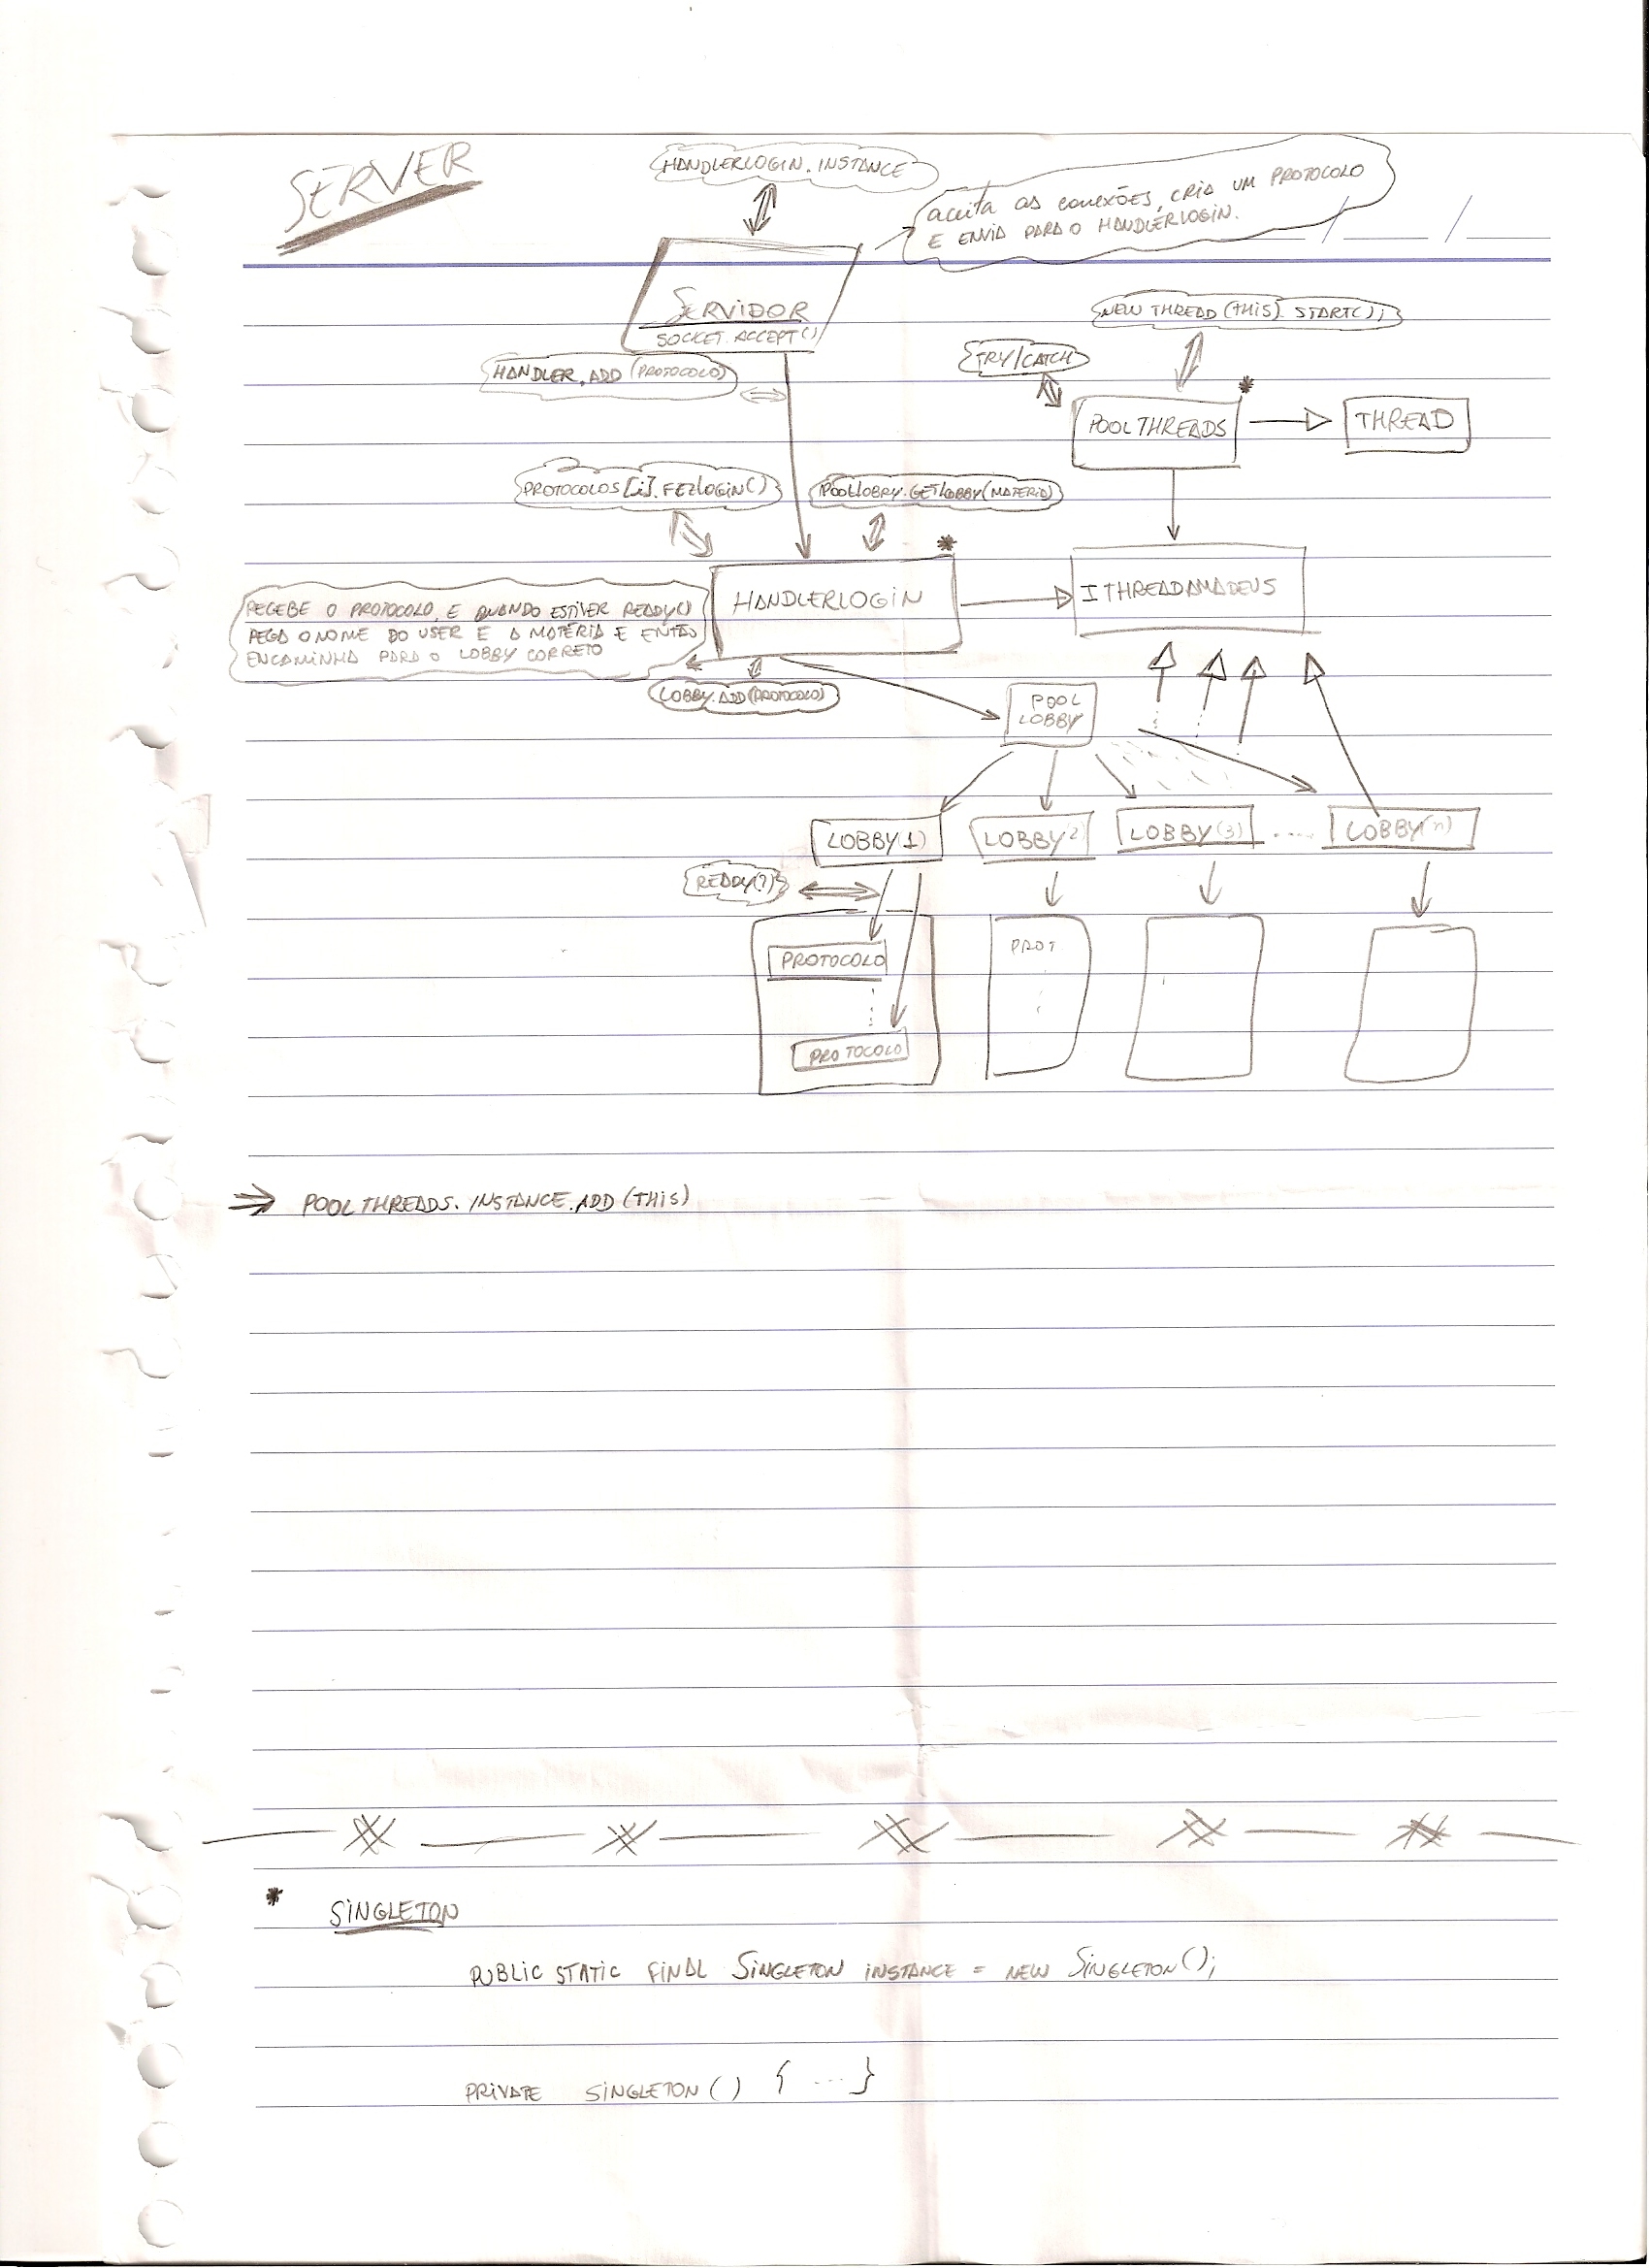 SERVER
HANDLERLOGIN.INSTANCE
aceita as conexões, cria um protocolo
e envia para o HANDLERLOGIN.
SERVIDOR
SOCKET.ACCEPT()
NEW THREAD (THIS).START();
TRY/CATCH
HANDLER.ADD (PROTOCOLO)
*
POOLTHREADS
THREAD
PROTOCOLOS[i].FEZLOGIN()
POOLLOBBY.GETLOBBY(MATERIA)
*
HANDLERLOGIN
ITHREADAMADEUS
RECEBE O PROTOCOLO, E QUANDO ESTIVER READY()
PEGA O NOME DO USER E A MATÉRIA E ENTÃO
ENCAMINHA PARA O LOBBY CORRETO
LOBBY.ADD(PROTOCOLO)
POOL
LOBBY
LOBBY(1)
LOBBY(2)
LOBBY(3)
.....
LOBBY(n)
READY(?)
PROTOCOLO
PROT
PROTOCOLO
⇒ POOLTHREADS.INSTANCE.ADD(THIS)
* SINGLETON
PUBLIC STATIC FINAL SINGLETON INSTANCE = NEW SINGLETON();
PRIVATE SINGLETON() { ... }